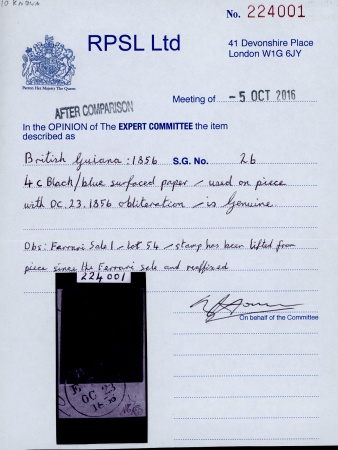 10 KNOWN
No. 224001
RPSL Ltd
41 Devonshire Place
London W1G 6JY
Patron Her Majesty The Queen
AFTER COMPARISON
Meeting of - 5 OCT 2016
In the OPINION of The EXPERT COMMITTEE the item
described as
British Guiana: 1856 S.G. No. 26
4c Black/blue surfaced paper - used on piece
with OC.23.1856 obliteration - is Genuine.
Obs: Ferrari Sale 1 - Lot 54 - stamp has been lifted from
piece since the Ferrari sale and reaffixed
224001
On behalf of the Committee
OC 23